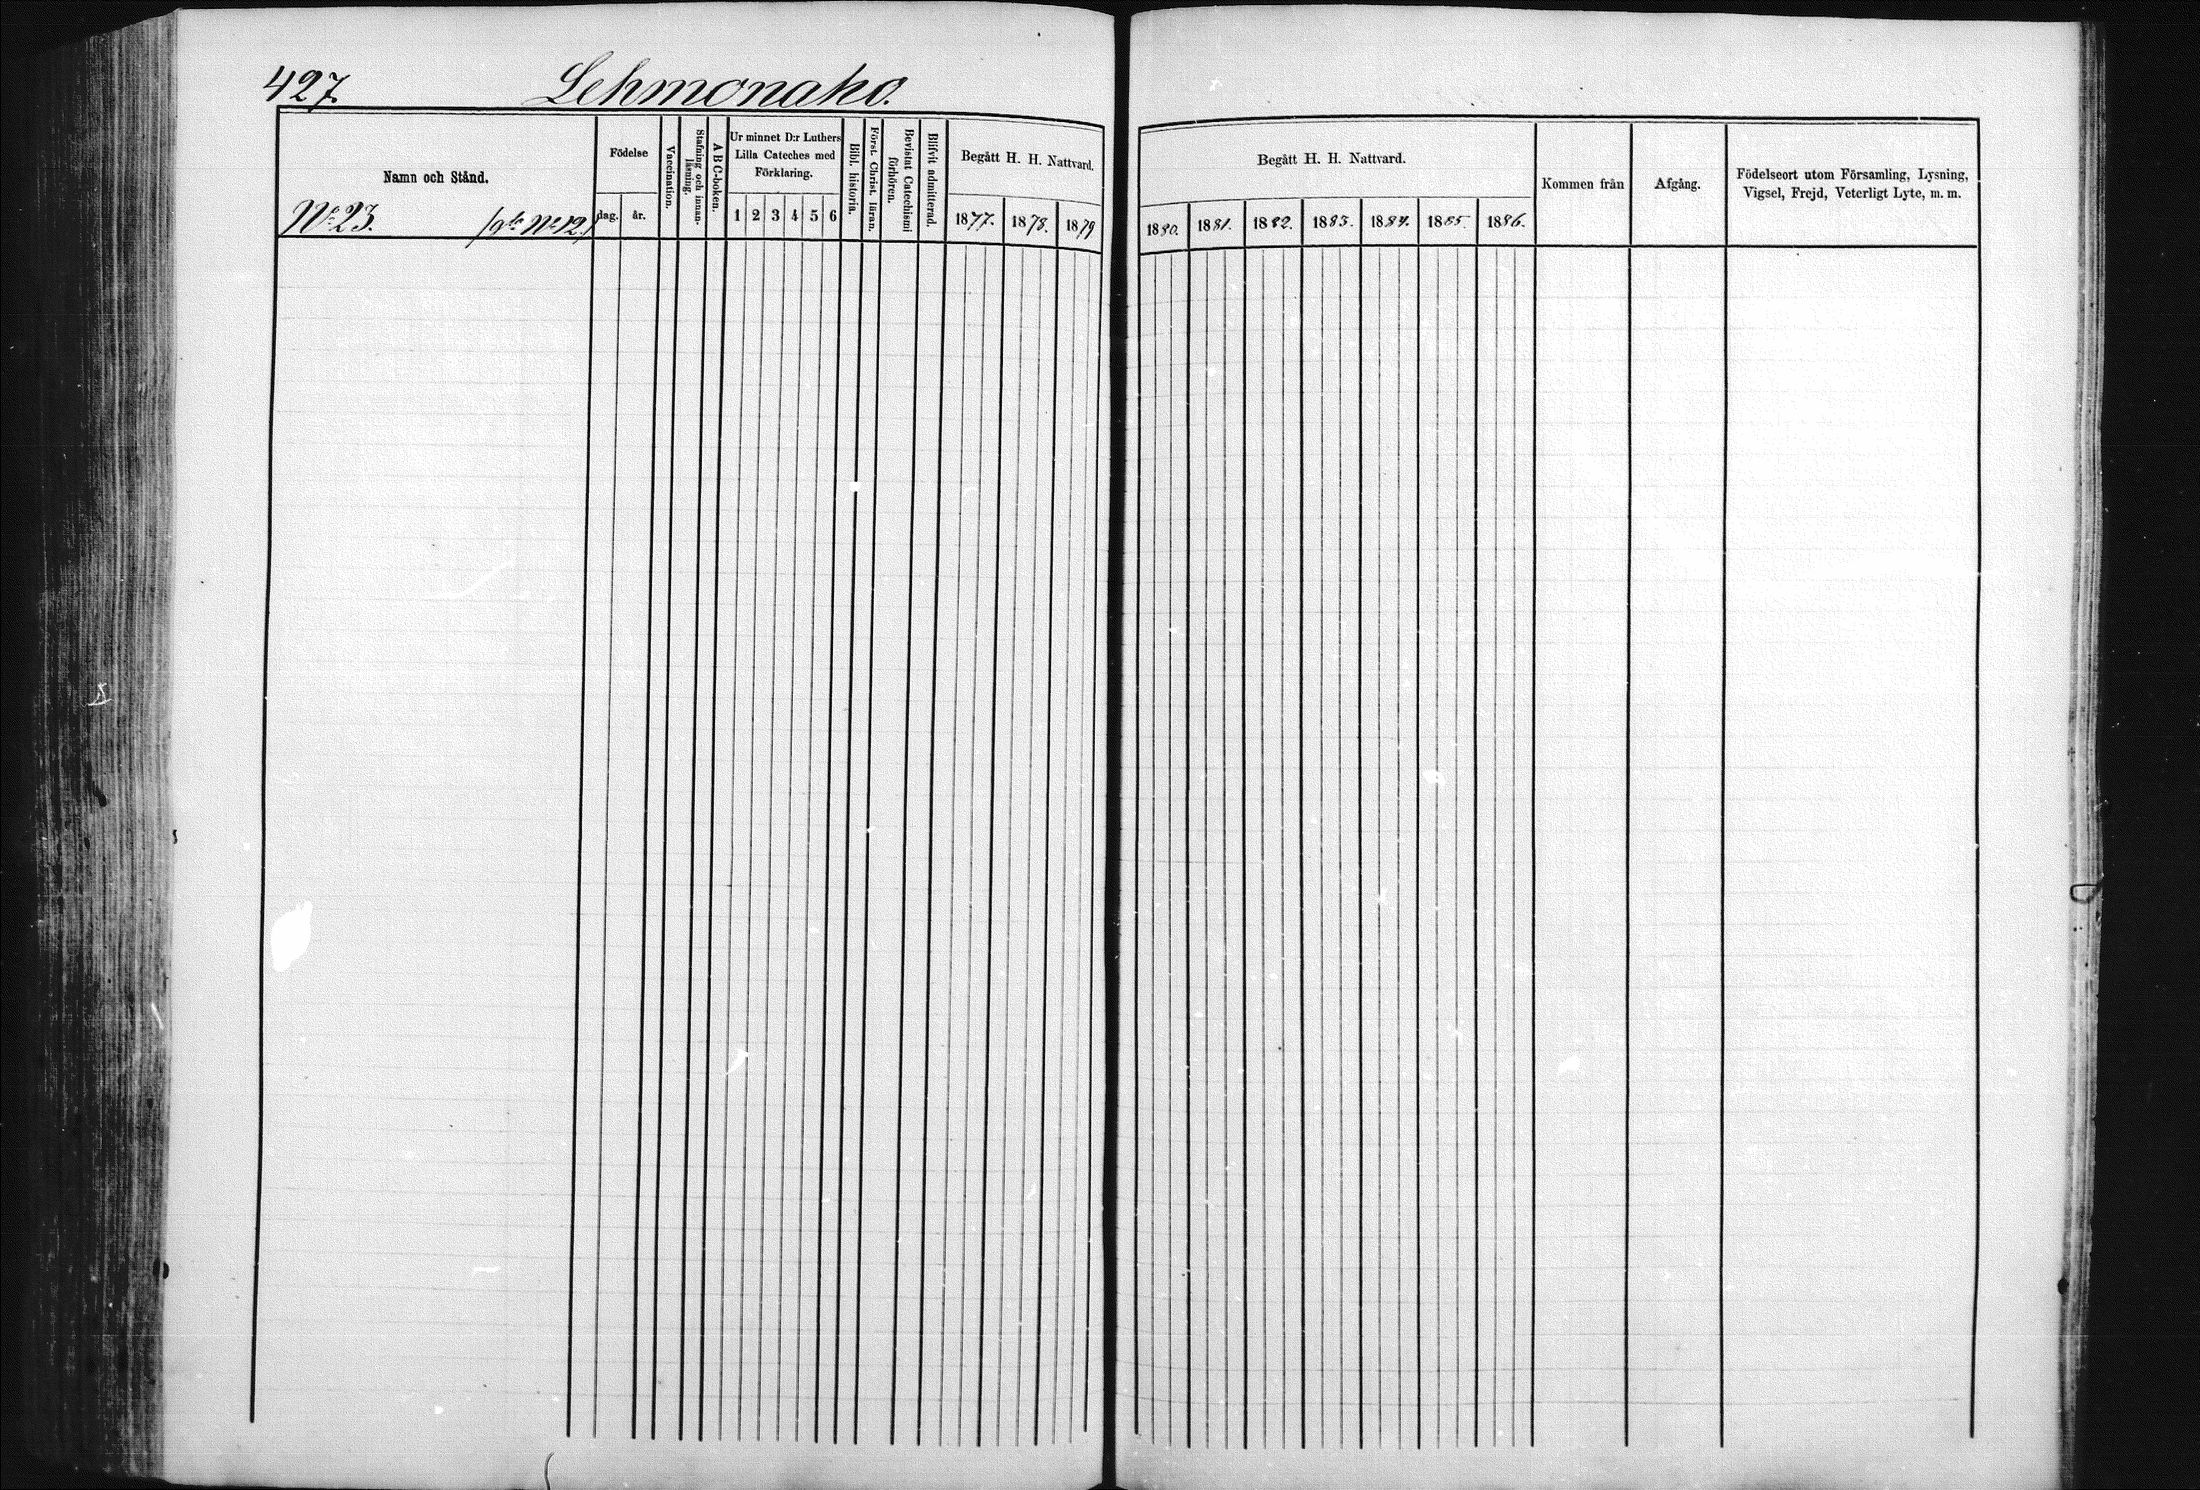 427.
Lehmonaho.
Namn och Stånd.
Nº 23. /gla Nº 12./
Födelse
dag. år.
Vaccination.
Stafning och innan-
läsning.
ABC-boken.
Ur minnet D:r Luthers
Lilla Cateches med
Förklaring.
1 2 3 4 5 6
Bibl. historia.
Först. Christ. läran.
Bevistat Catechismi
förhören.
Blifvit admitterad.
Begått H. H. Nattvard.
1877. 1878. 1879
Begått H. H. Nattvard.
1880. 1881. 1882. 1883. 1884. 1885. 1886.
Kommen från
Afgång.
Födelseort utom Församling, Lysning,
Vigsel, Frejd, Veterligt Lyte, m. m.